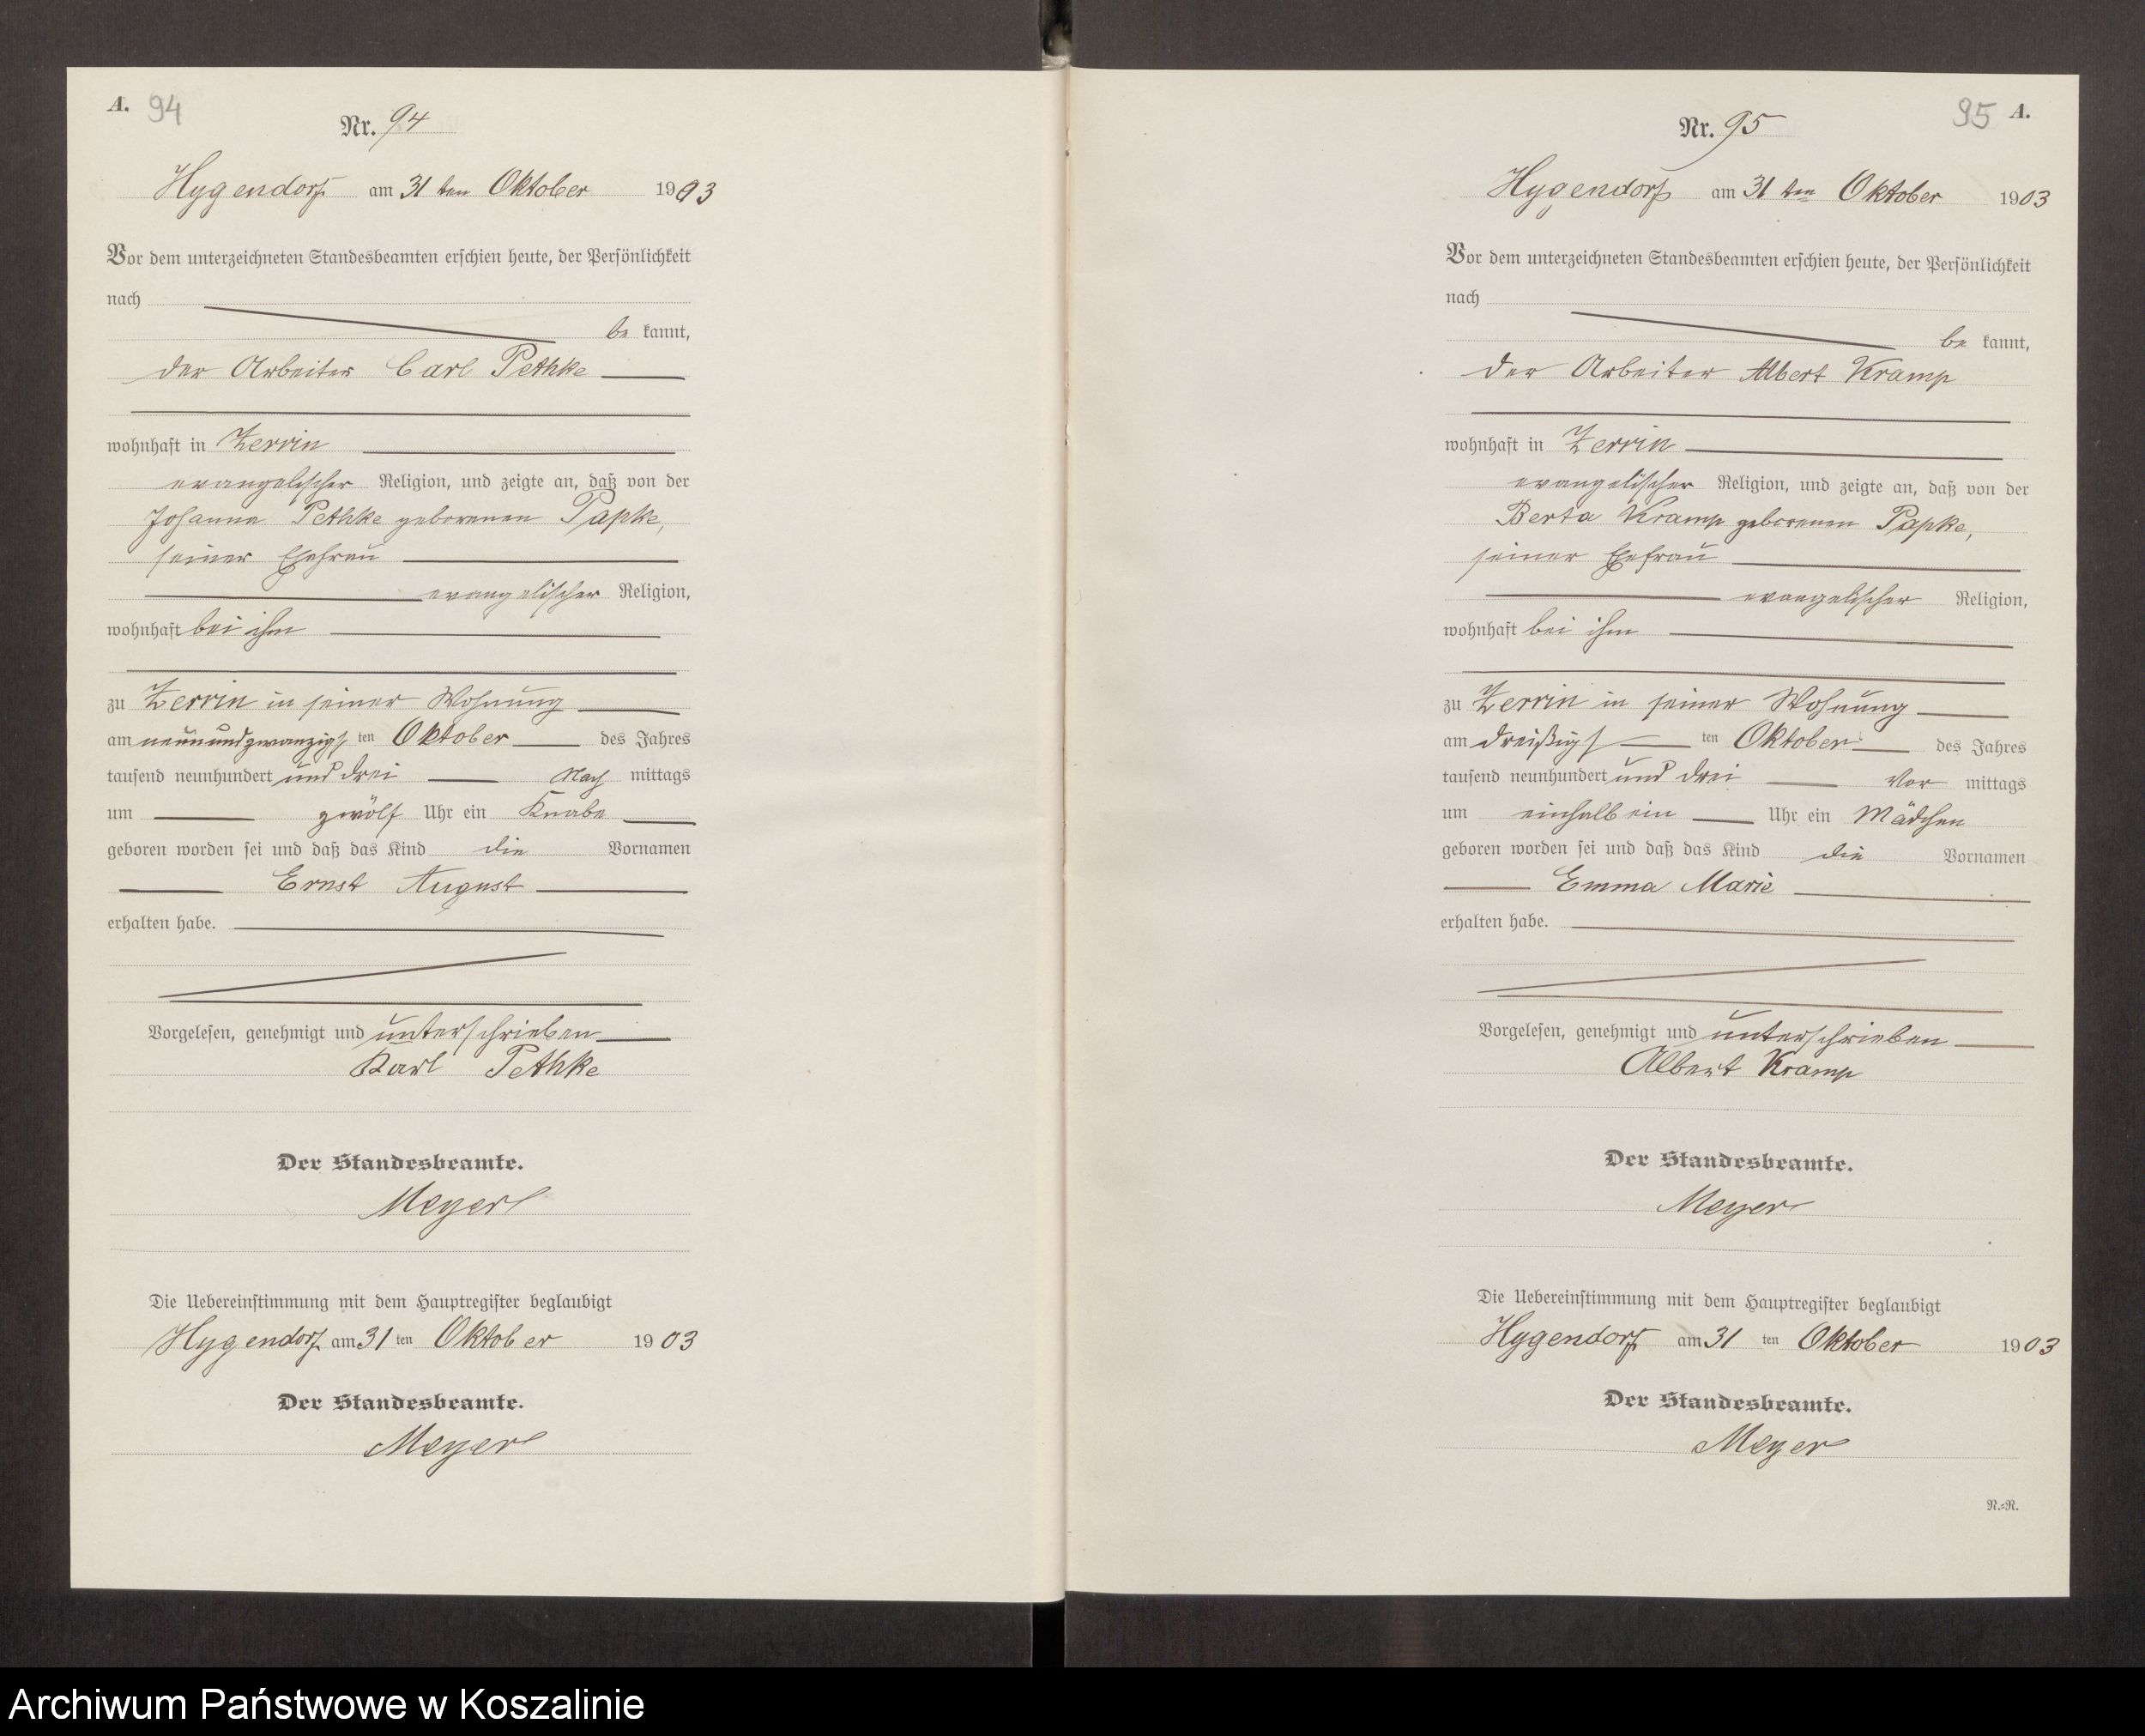 A. 94
Nr. 94
Hygendorf am 31 ten Oktober 1903
Vor dem unterzeichneten Standesbeamten erschien heute, der Persönlichkeit
nach
be kannt,
der Arbeiter Carl Pethke
wohnhaft in Zerrin
evangelischer Religion, und zeigte an, daß von der
Johanna Pethke geborenen Papke,
seiner Ehefrau
evangelischer Religion,
wohnhaft bei ihm
zu Zerrin in seiner Wohnung
am neunundzwanzigsten Oktober des Jahres
tausend neunhundert und drei Nach mittags
um zwölf Uhr ein Knabe
geboren worden sei und daß das Kind die Vornamen
Ernst August
erhalten habe.
Vorgelesen, genehmigt und unterschrieben
Karl Pethke
Der Standesbeamte.
Meyer
Die Uebereinstimmung mit dem Hauptregister beglaubigt
Hygendorf am 31 ten Oktober 1903
Der Standesbeamte.
Meyer
95 A.
Nr. 95
Hygendorf am 31 ten Oktober 1903
Vor dem unterzeichneten Standesbeamten erschien heute, der Persönlichkeit
nach
be kannt,
der Arbeiter Albert Kramp
wohnhaft in Zerrin
evangelischer Religion, und zeigte an, daß von der
Berta Kramp geborenen Papke,
seiner Ehefrau
evangelischer Religion,
wohnhaft bei ihm
zu Zerrin in seiner Wohnung
am dreißigsten Oktober des Jahres
tausend neunhundert und drei Vor mittags
um einhalb ein Uhr ein Mädchen
geboren worden sei und daß das Kind die Vornamen
Emma Marie
erhalten habe.
Vorgelesen, genehmigt und unterschrieben
Albert Kramp
Der Standesbeamte.
Meyer
Die Uebereinstimmung mit dem Hauptregister beglaubigt
Hygendorf am 31 ten Oktober 1903
Der Standesbeamte.
Meyer
N.=N.
Archiwum Państwowe w Koszalinie